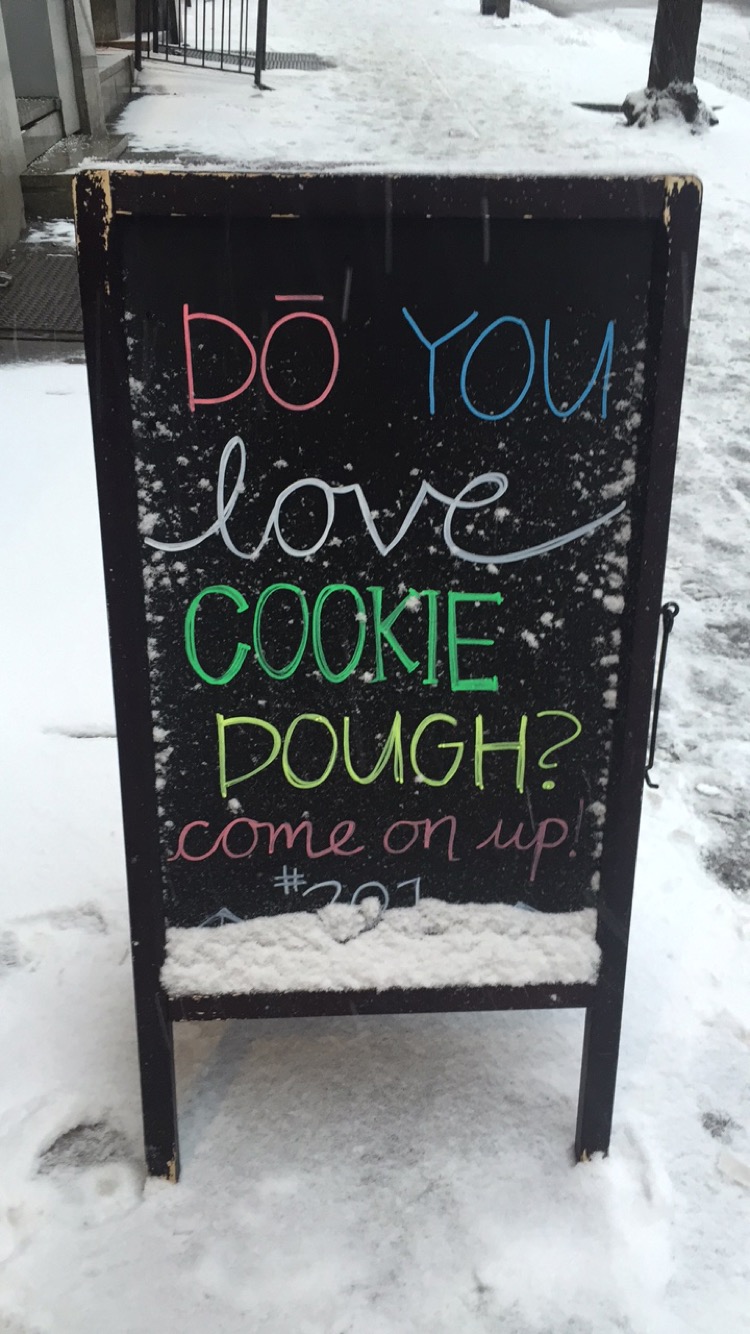 DŌ YOU
love
COOKIE
DOUGH?
come on up!
#201